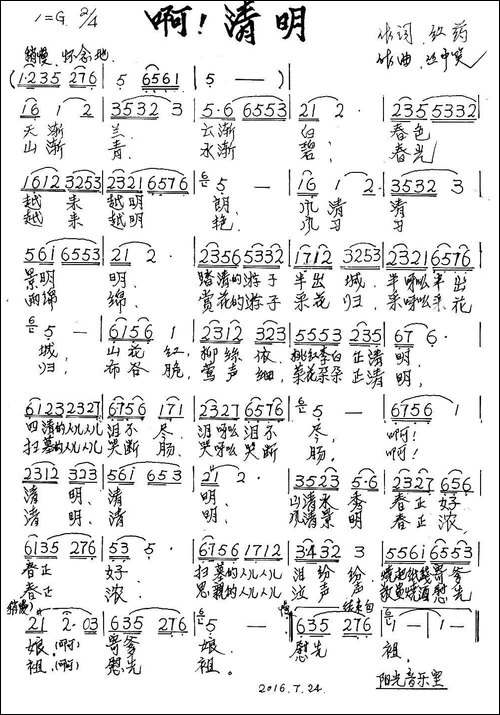 啊！清明
1=G 2/4
作词 红药
稍慢 怀念地
作曲
(1·235 276 | 5 6561 | 5 — )
16 1 2 | 3532 3 | 5·6 6553 | 21 2 · | 235 5332
天渐 兰 云渐 白 春色
山渐 青 水渐 碧 春光
1612 3253 | 2321 6576 | 5 — | 16 1 2· | 3532 3
越来 越明 朗 风清 清
越来 越明 艳 风习 习
561 6553 | 21 2 · | 2356 5332 | 1712 3253 | 2321 6576
景明 明 踏清的游子 半出 城 半呀么半出
雨绵 绵 赏花的游子 采花 归 采呀么采花
5 — | 6156 1 | 2312 323 | 5553 235 | 67 6 ·
城 山花 红 柳丝 浓 桃红李白 正清 明
归 布谷 脆 莺声 细 菜花朵朵 正清 明
6123 2327 | 6756 171 | 2327 6576 | 5 — | 6756 1
回清的人儿人儿 泪不 尽 泪呀么泪不 尽 啊!
扫墓的人儿人儿 哭断 肠 哭呀么哭断 肠 啊!
2312 323 | 561 653 | 21 2 · | 3523 5·6 | 2327 656
清明 清 明 山清水 秀 春正 好
清明 清 明 风清景 明 春正 浓
6135 276 | 53 5 · | 6756 1712 | 3432 3 | 5561 6553
春正 好 扫墓的人儿人儿 泪纷 纷 烧起纸钱寄爹
春正 浓 思亲的人儿人儿 泣声 声 慰先
稍慢 慢 结束句
21 2·03 | 635 276 | 5 — | 635 276 | 1 — | 1 — |
娘(啊) 寄爹 娘 慰先 祖
祖(啊) 慰先 祖
2016.7.24.
阳光音乐里